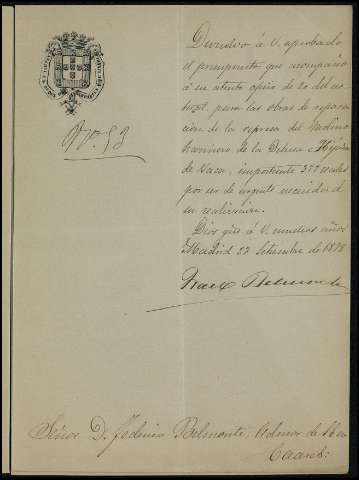 Nº 53
Devuelvo á V. aprobado
el presupuesto que acompañó
á su atento oficio de 20 del ac-
tual, para las obras de repara-
cion de la represa del Molino
harinero de la Dehesa
de Vaca, importante 377 reales
por ser de urgente necesidad
su realizacion.
Dios gūe á V. muchos años
Madrid 27 Setiembre de 1878
Belmonte
Señor D. Federico Belmonte, Admor de